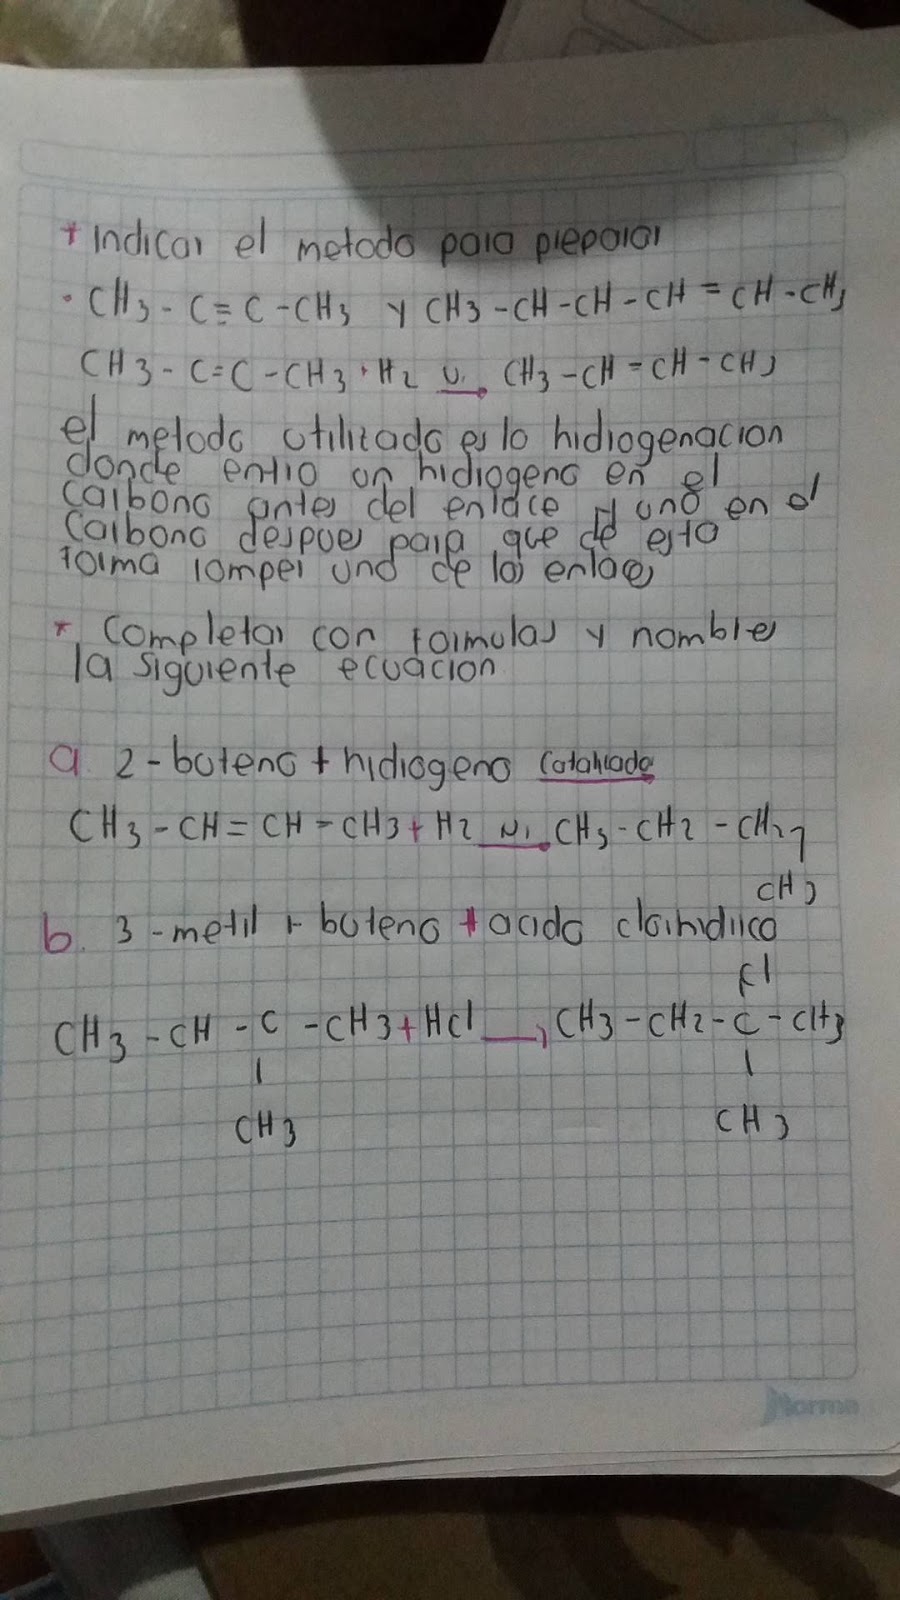 * Indicar el metodo para preparar
· CH3 - C ≡ C - CH3 y CH3 - CH - CH - CH = CH - CH3
CH3 - C = C - CH3 + H2 → CH3 - CH = CH - CH3
el metodo utilizado es la hidrogenacion
donde entro un hidrogeno en el
carbono antes del enlace y uno en el
carbono despues para que de esta
forma romper uno de los enlaces
* Completar con formulas y nombres
la siguiente ecuacion
a. 2 - buteno + hidrogeno
CH3 - CH = CH - CH3 + H2 Ni → CH3 - CH2 - CH2 -
CH3
b. 3 - metil 1 - buteno + acido clorhidrico
Cl
CH3 - CH - C - CH3 + HCl → CH3 - CH2 - C - CH3
| |
CH3 CH3
Norma